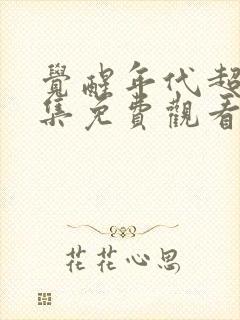 覺醒年代超
集免費觀看
花花心思